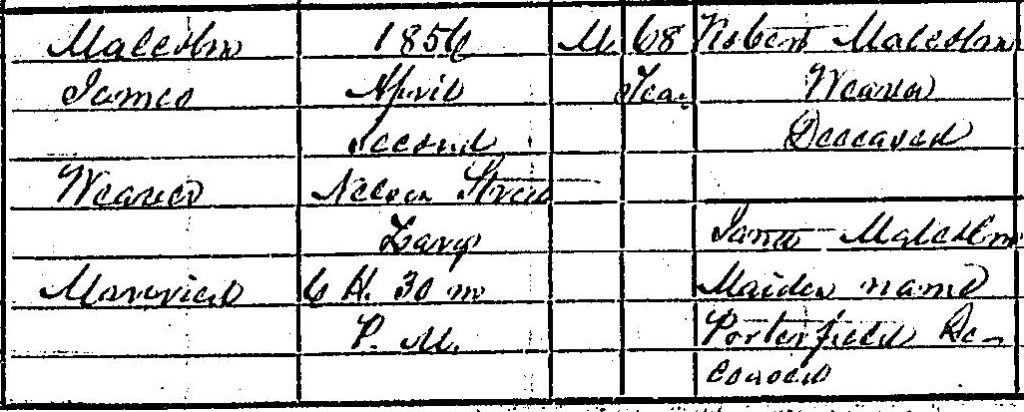 Malcolm 1856 M. 68 Robert Malcolm
James April Yea. Weaver
Second Deceased
Weaver Nelson Street
Largs Janet Malcolm
Married 6 H. 30 m Maiden name
P. M. Porterfield De-
ceased